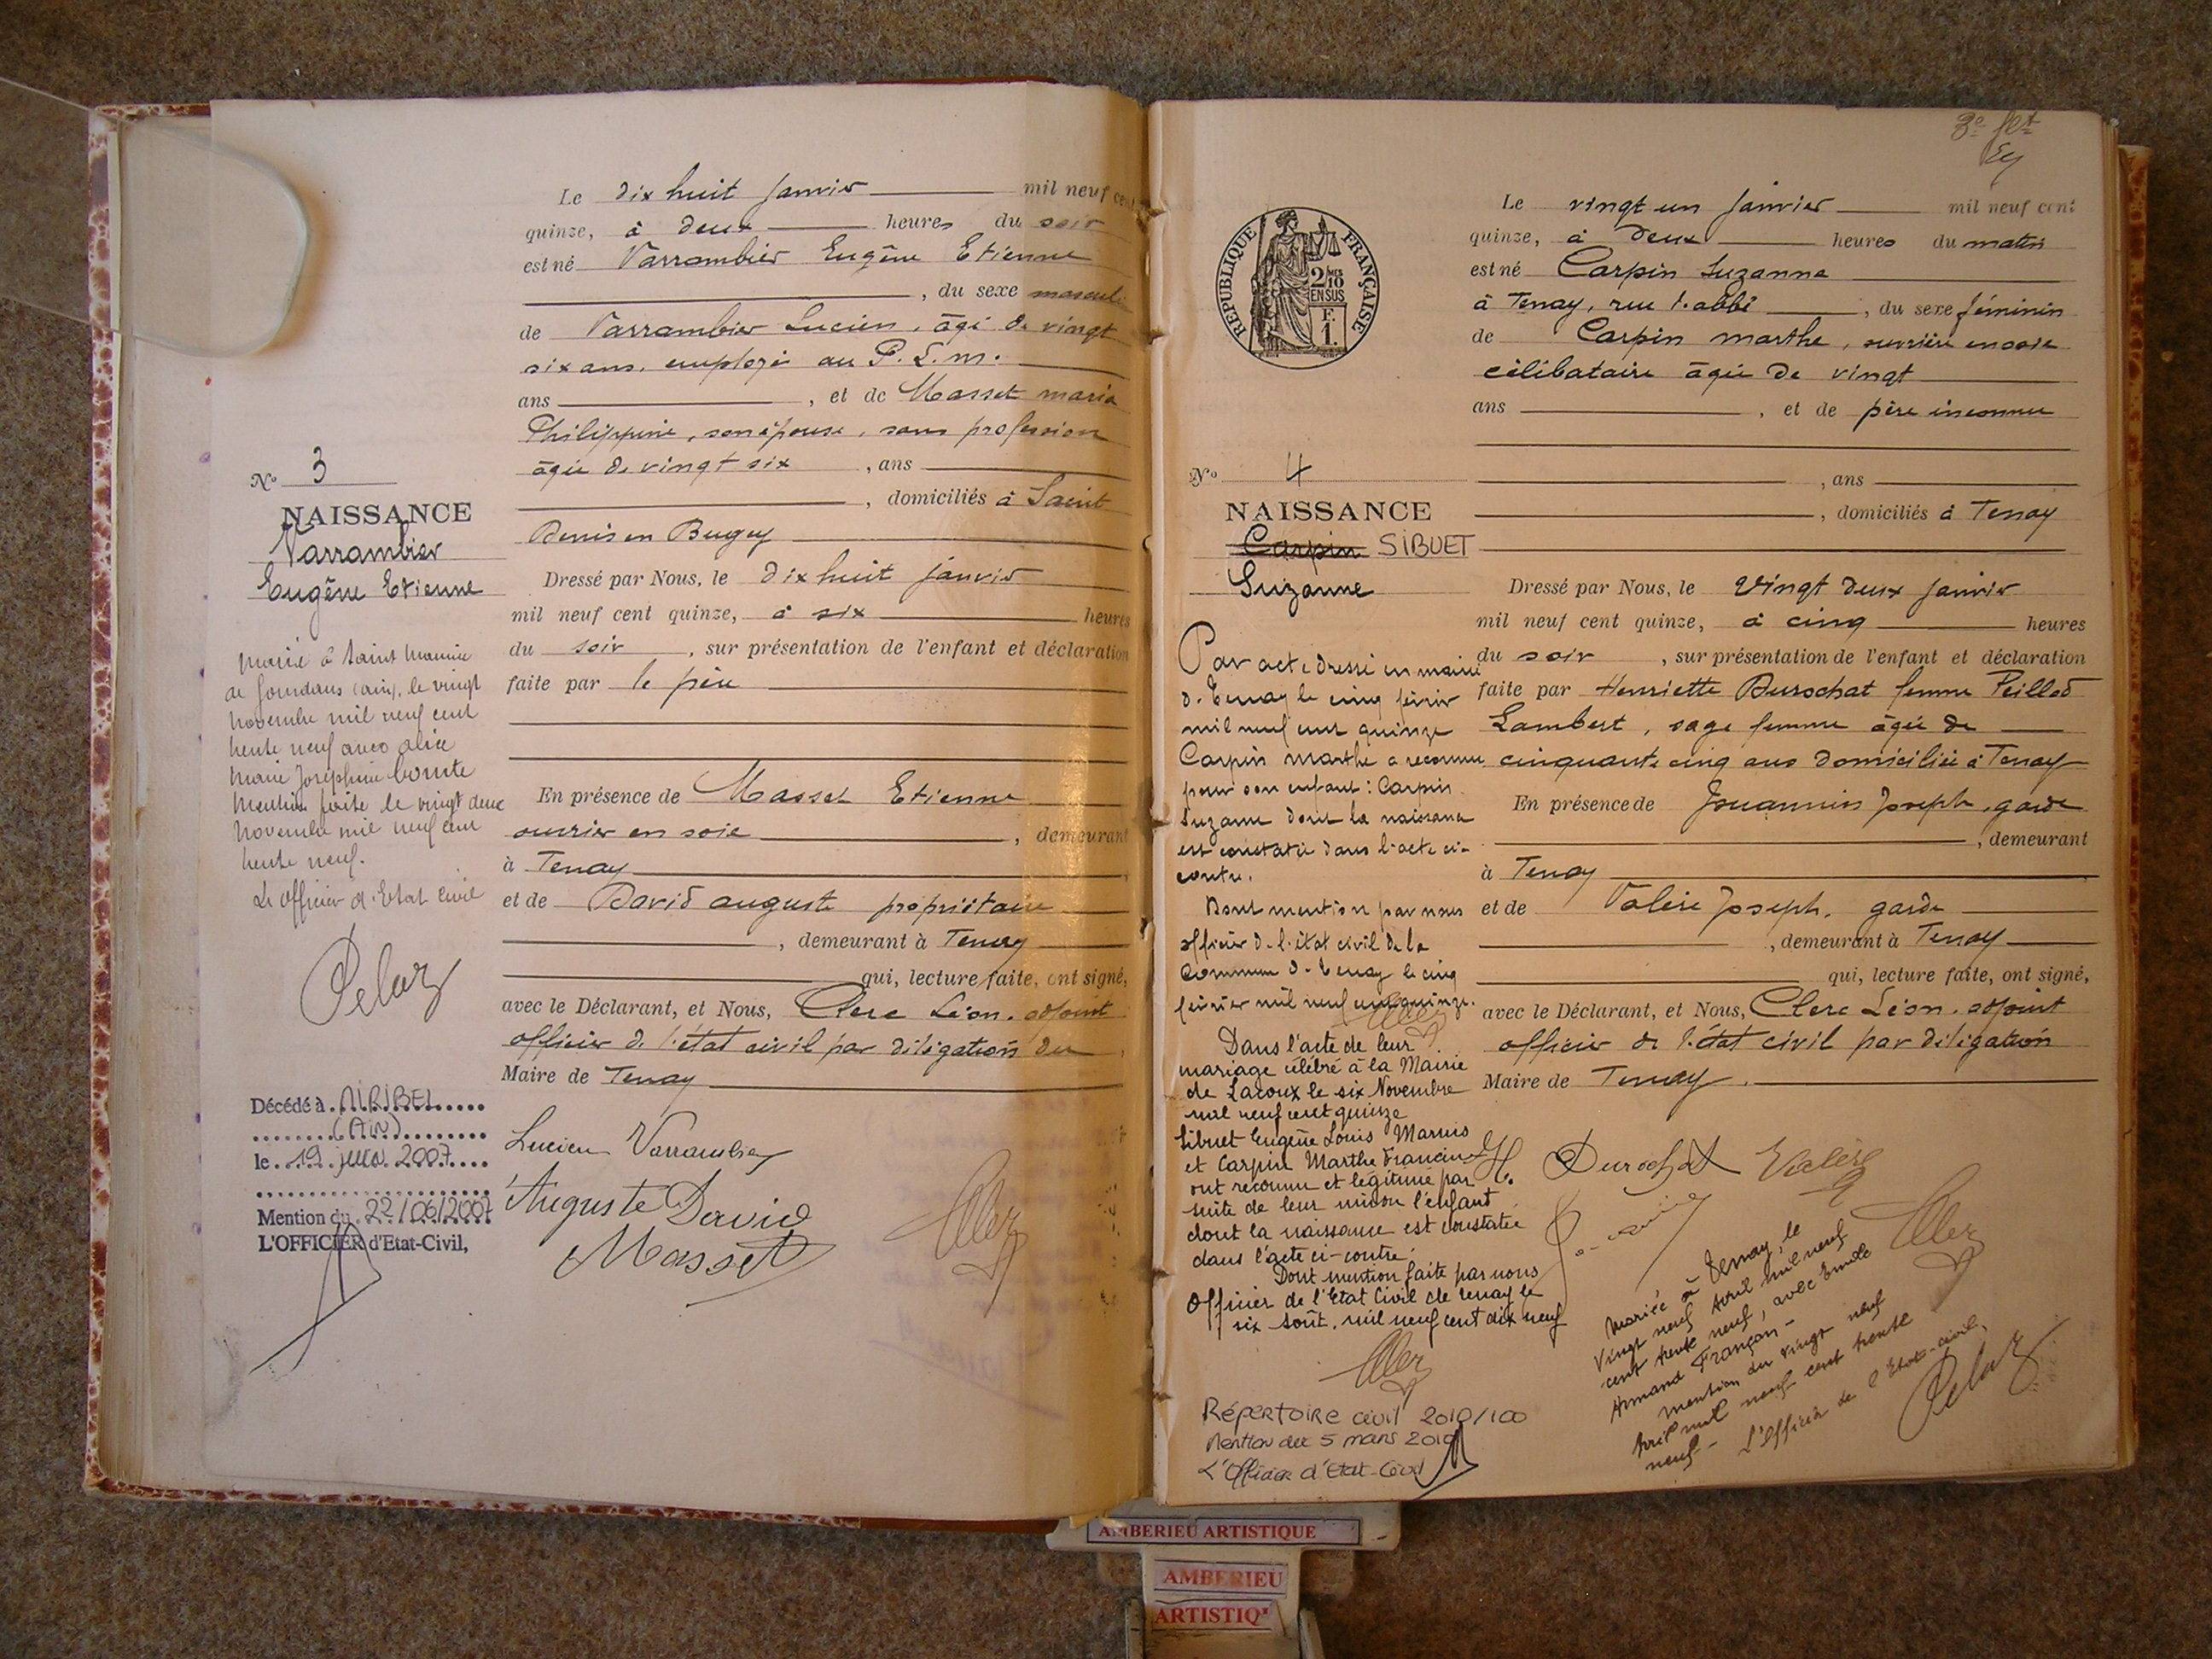 Le dix huit janvier mil neuf cent
quinze, à deux heures du soir
est né Varrambier Eugène Etienne
, du sexe masculin
de Varrambier Lucien, âgé de vingt
six ans, employé au P. L. m.
ans , et de Masset maria
Philippine, son épouse, sans profession
âgée de vingt six , ans
, domiciliés à Saint
Denis en Bugey
Dressé par Nous, le dix huit janvier
mil neuf cent quinze, à six heures
du soir , sur présentation de l'enfant et déclaration
faite par le père
En présence de Masset Etienne
ouvrier en soie , demeurant
à Tenay
et de David auguste propriétaire
, demeurant à Tenay
qui, lecture faite, ont signé,
avec le Déclarant, et Nous, Clerc Léon, adjoint
officier de l'état civil par délégation du
Maire de Tenay
Lucien Varrambier
Auguste David
Masset
No 3
NAISSANCE
Varrambier
Eugène Etienne
marié à Saint Maurice
de Gourdans (ain), le vingt
novembre mil neuf cent
trente neuf avec alice
Marie Joséphine Comte
Mention faite le vingt deux
novembre mil neuf cent
trente neuf.
Le officier d'Etat civil
Pelaz
Décédé à MIRIBEL
(AIN)
le 19 juin 2007
Mention du 22/06/2007
L'OFFICIER d'Etat-Civil,
3e
REPUBLIQUE FRANÇAISE
2/10
EN SUS
F.
1.
Le vingt un janvier mil neuf cent
quinze, à deux heures du matin
est né Carpin Suzanne
à Tenay, rue l'abbé , du sexe féminin
de Carpin marthe, ouvrière en soie
célibataire âgée de vingt
ans , et de père inconnu
, ans
, domiciliés à Tenay
Dressé par Nous, le vingt deux janvier
mil neuf cent quinze, à cinq heures
du soir , sur présentation de l'enfant et déclaration
faite par Henriette Durochat femme Peillod
Lambert, sage femme âgée de
cinquante cinq ans domiciliée à Tenay
En présence de Jouannin Joseph, garde
, demeurant
à Tenay
et de Valérie Joseph, garde
, demeurant à Tenay
qui, lecture faite, ont signé,
avec le Déclarant, et Nous, Clerc Léon, adjoint
officier de l'état civil par délégation
Maire de Tenay.
No 4
NAISSANCE
Carpin SIBUET
Suzanne
Par acte dressé en mairie
de Tenay le cinq février
mil neuf cent quinze
Carpin marthe a reconnu
pour son enfant : Carpin
Suzanne dont la naissance
est constatée dans l'acte ci-
contre.
Dont mention par nous
officier de l'état civil de la
commune de Tenay le cinq
février mil neuf cent quinze.
Dans l'acte de leur
mariage célébré à la Mairie
de Lacoux le six Novembre
mil neuf cent quinze
Sibuet Eugène Louis Marius
et Carpin Marthe Francine
ont reconnu et légitimé par
suite de leur union l'enfant
dont la naissance est constatée
dans l'acte ci-contre.
Dont mention faite par nous
Officier de l'Etat Civil de Tenay le
six Août, mil neuf cent dix neuf
Répertoire civil 2010/100
Mention du 5 mars 2010
L'Officier d'Etat-Civil
H. Durochat Valérie
Mariée à Tenay, le
vingt neuf Avril mil neuf
cent trente neuf, avec Emile
Armand Françon -
mention du vingt neuf
Avril mil neuf cent trente
neuf - L'Officier de l'Etat-civil,
Pelaz
AMBERIEU ARTISTIQUE
AMBERIEU
ARTISTIQ